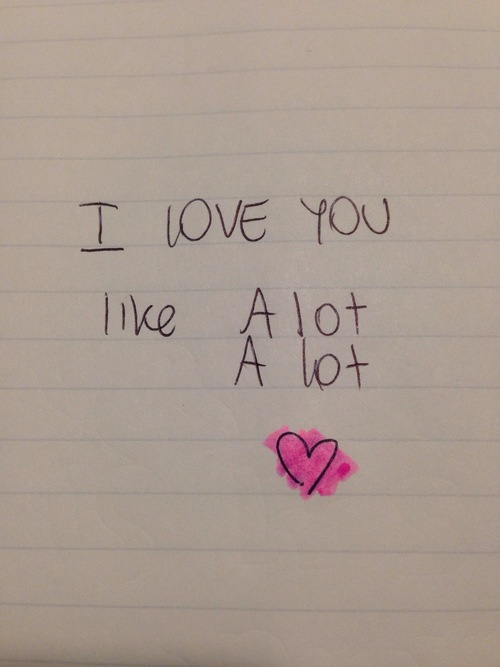 I LOVE YOU
like A lot
A lot